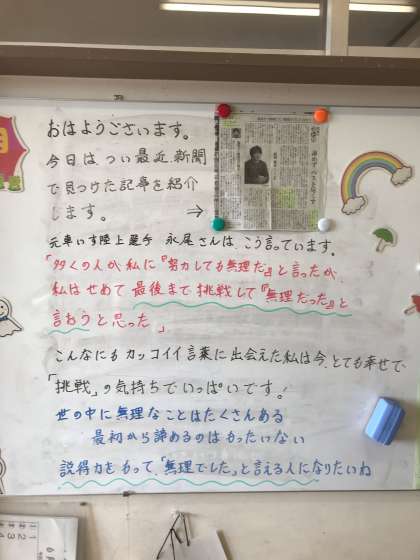 おはようございます。
今日は、つい最近、新聞
で見つけた記事を紹介
します。 ⇒
元車いす陸上選手 永尾さんは、こう言っています。
「多くの人が私に『努力しても無理だ』と言ったが、
私はせめて最後まで挑戦して『無理だった』と
言おうと思った」
こんなにもカッコイイ言葉に出会えた私は今、とても幸せで、
「挑戦」の気持ちでいっぱいです!
世の中に無理なことはたくさんある
最初から諦めるのはもったいない
説得力をもって、「無理でした」と言える人になりたいね